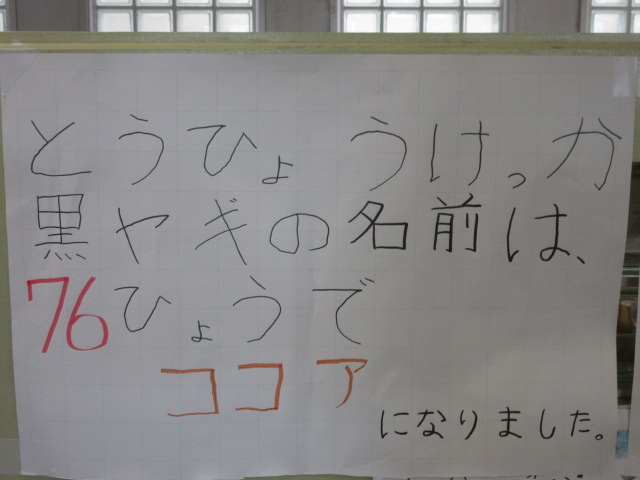 とうひょうけっか
黒ヤギの名前は、
76ひょうで
ココア
になりました。